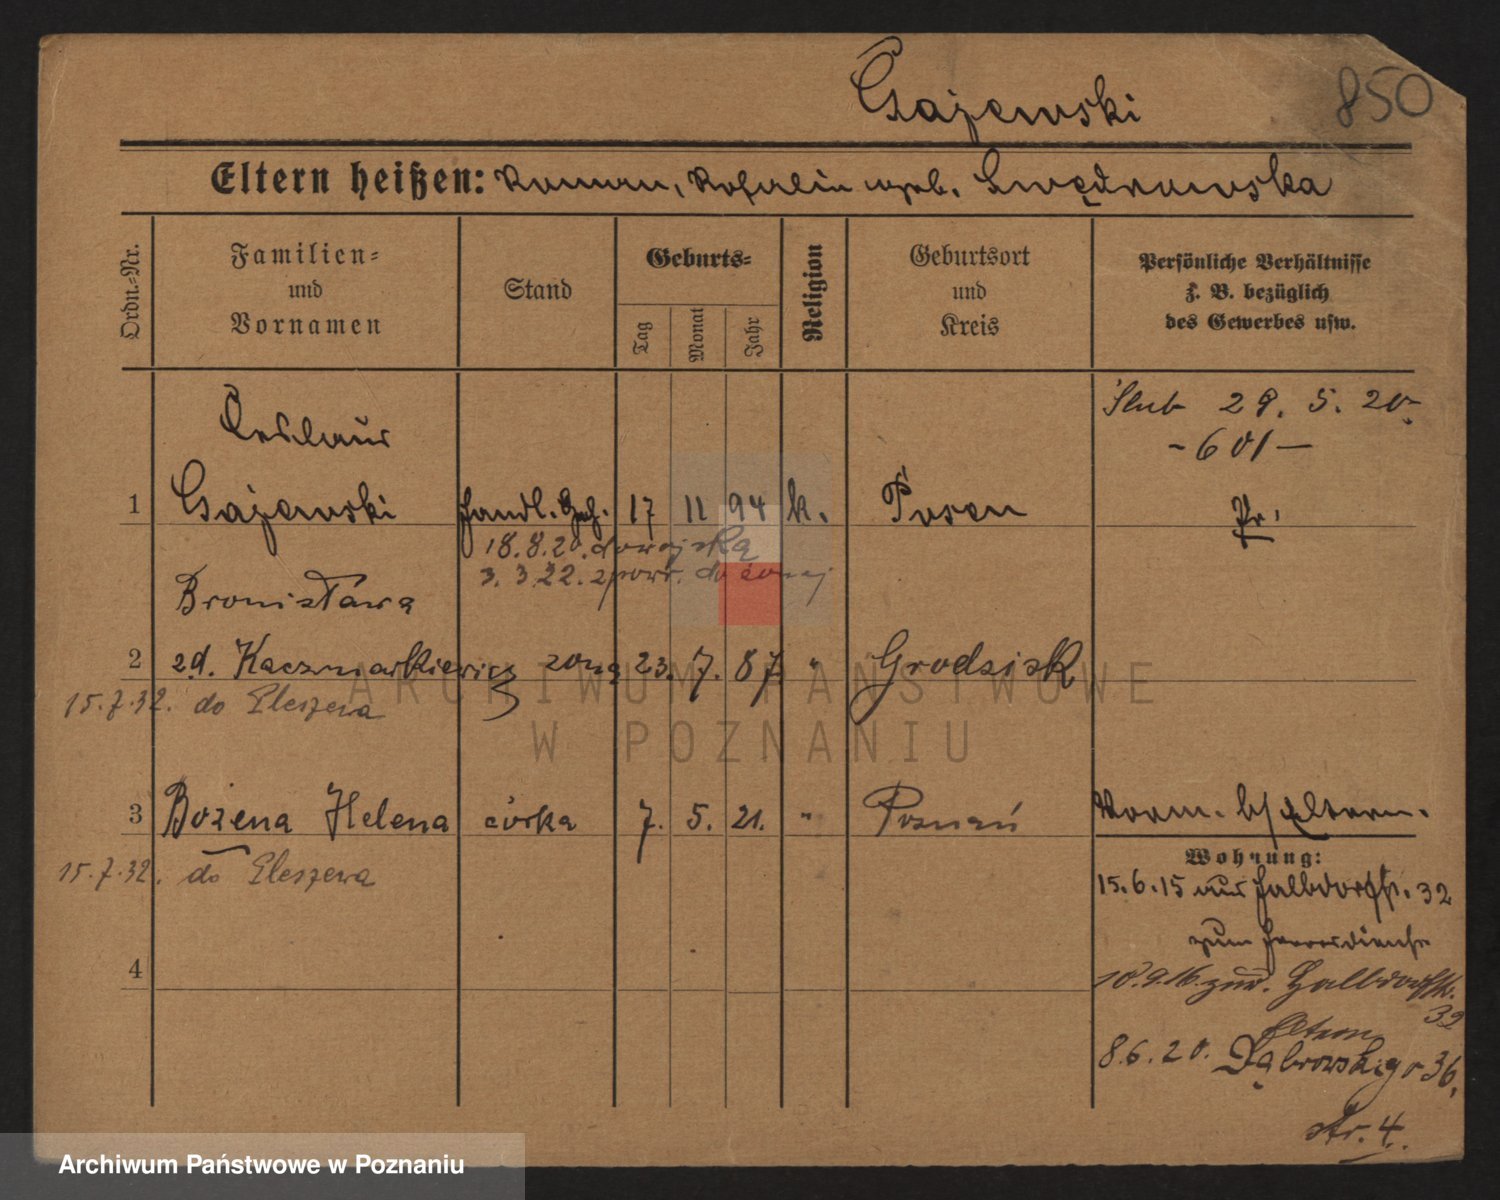 Gajewski
850
Eltern heißen: Roman, Rosalia geb. Swędrowska
Ordn.-Nr.
Familien-
und
Vornamen
Stand
Geburts-
Tag
Monat
Jahr
Religion
Geburtsort
und
Kreis
Persönliche Verhältnisse
z. B. bezüglich
des Gewerbes usw.
Ślub 29. 5. 20
- 601 -
Ceslaus
1 Gajewski Handl. Geh. 17 11 94 k. Posen Pr.
18.8.20. do wojska
3. 3.22. z powr. do żonej
Bronisława
2 zd. Kaczmarkiewicz żona 23. 7. 87. " Grodzisk
15.7.32. do Pleszewa
3 Bożena Helena córka 7. 5. 21. " Poznań
Vorm. b/ Eltern.
15.7.32. do Pleszewa
Wohnung:
15.6.15 aus Halbdorfstr. 32
zum Heeresdienst
18.9.16. zur. Halbdorfstr.
32
Eltern
8.6.20. Dąbrowskiego 36,
4
str. 4.
ARCHIWUM PAŃSTWOWE
W POZNANIU
Archiwum Państwowe w Poznaniu